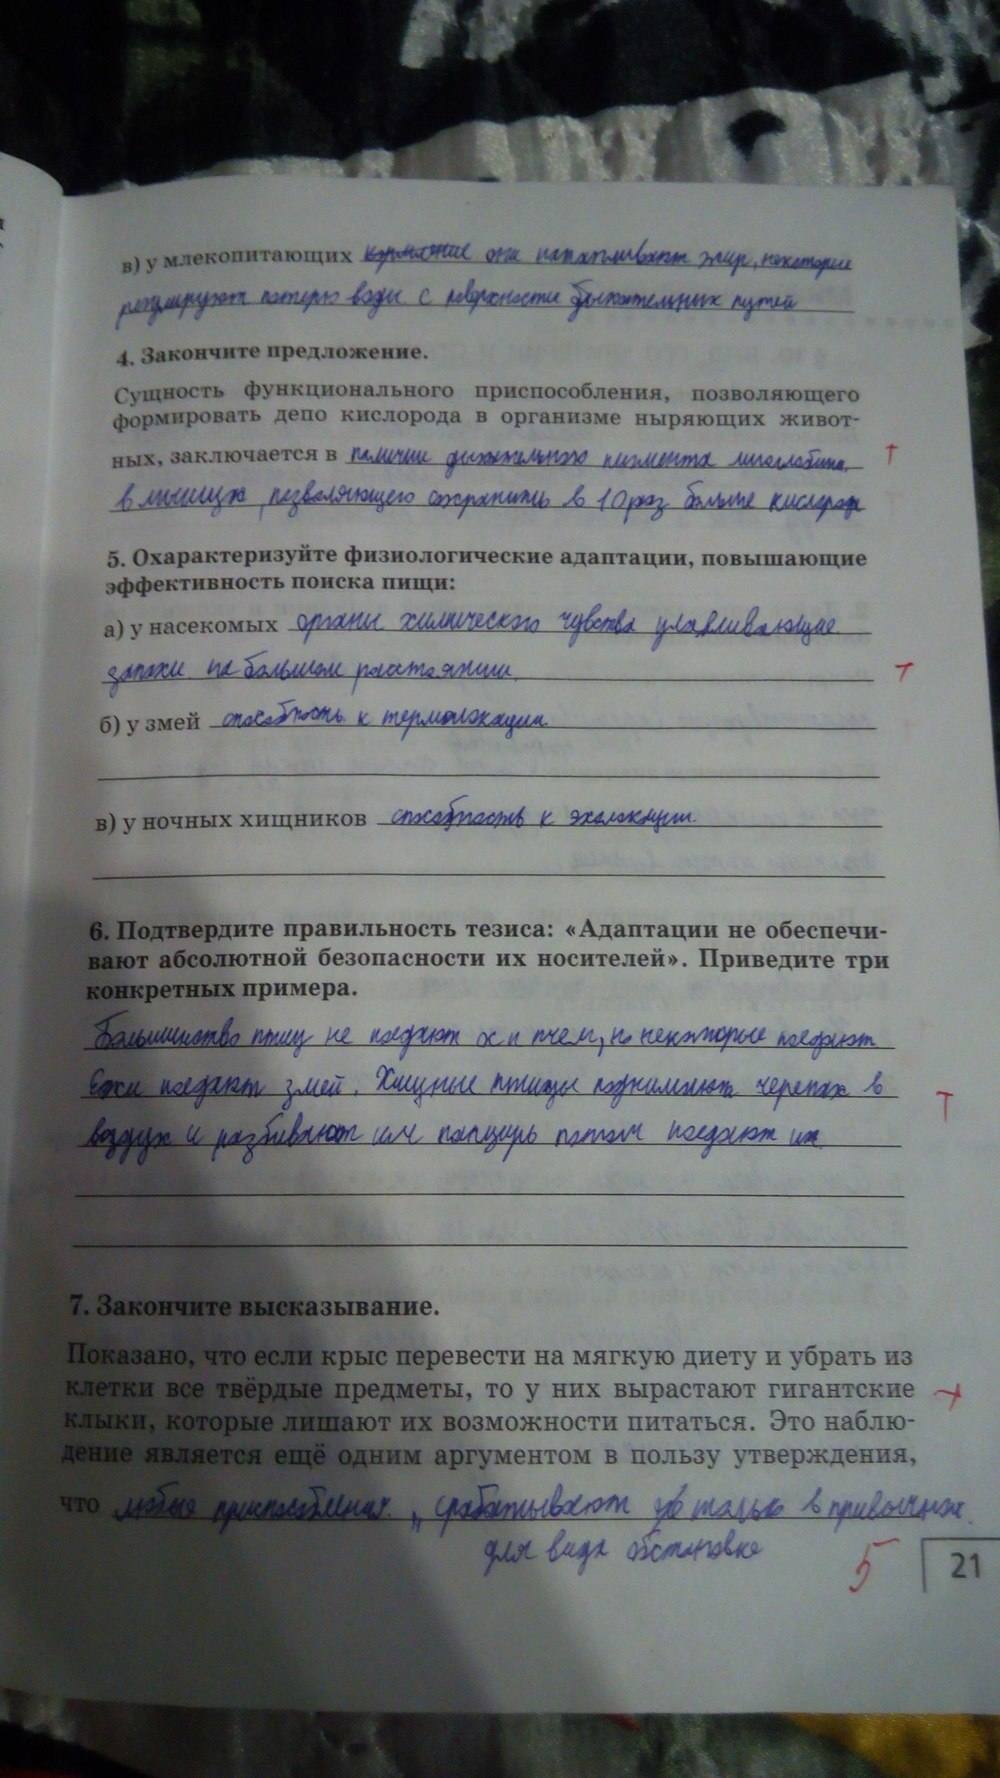 в) у млекопитающих кормление они накапливают жир, некоторые
регулируют потерю воды с поверхности дыхательных путей
4. Закончите предложение.
Сущность функционального приспособления, позволяющего
формировать депо кислорода в организме ныряющих живот-
ных, заключается в наличии дыхательного пигмента миоглобина
в мышцах, позволяющего сохранить в 10 раз больше кислорода
5. Охарактеризуйте физиологические адаптации, повышающие
эффективность поиска пищи:
а) у насекомых органы химического чувства улавливающие
запахи на большом расстоянии.
б) у змей способность к термолокации
в) у ночных хищников способность к эхолокации
6. Подтвердите правильность тезиса: «Адаптации не обеспечи-
вают абсолютной безопасности их носителей». Приведите три
конкретных примера.
Большинство птиц не поедают ос и пчел, но некоторые поедают
Ежи поедают змей. Хищные птицы поднимают черепах в
воздух и разбивают им панцирь потом поедают их
7. Закончите высказывание.
Показано, что если крыс перевести на мягкую диету и убрать из
клетки все твёрдые предметы, то у них вырастают гигантские
клыки, которые лишают их возможности питаться. Это наблю-
дение является ещё одним аргументом в пользу утверждения,
что любые приспособления срабатывают только в привычной
для вида обстановке
5
21